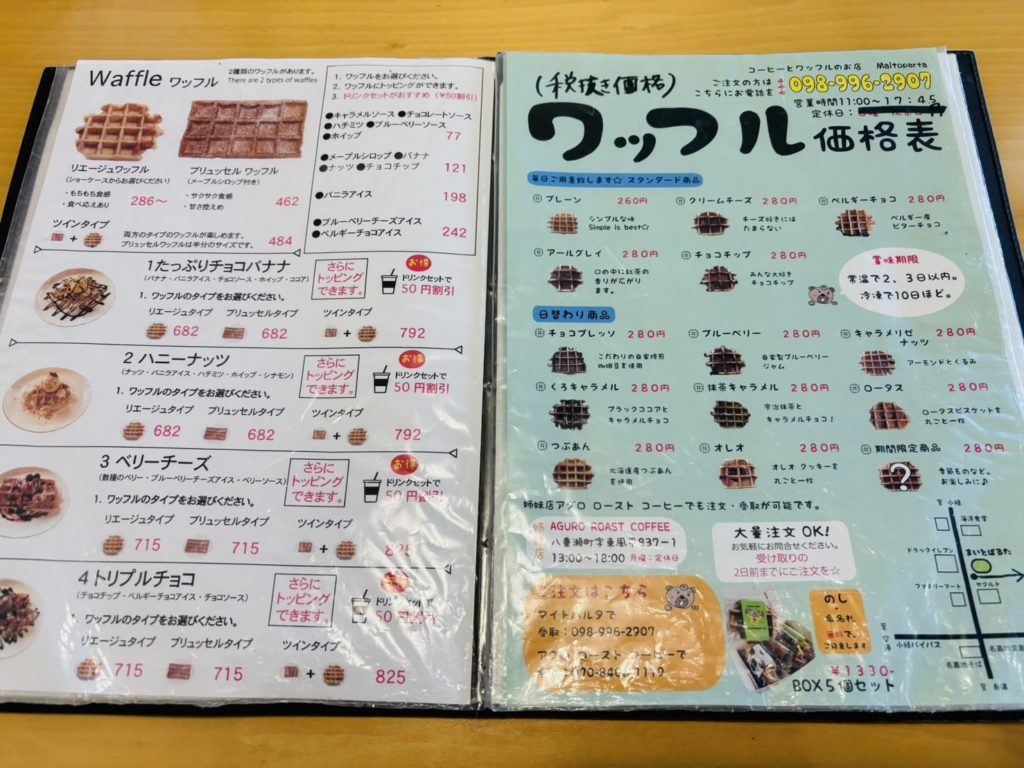 Waffle ワッフル
2種類のワッフルがあります。
There are 2 types of waffles
1. ワッフルをお選びください。
2. ワッフルにトッピングができます。
3. ドリンクセットがおすすめ(¥50割引)
●キャラメルソース ●チョコレートソース
●ハチミツ ●ブルーベリーソース
●ホイップ 77
●メープルシロップ ●バナナ
●ナッツ ●チョコチップ 121
●バニラアイス 198
●ブルーベリーチーズアイス
●ベルギーチョコアイス 242
リエージュワッフル
(ショーケースからお選びください)
・もちもち食感
・食べ応えあり 286〜
ブリュッセル ワッフル
(メープルシロップ付き)
・サクサク食感
・甘さ控えめ 462
ツインタイプ
+
両方のタイプのワッフルが楽しめます。
ブリュッセルワッフルは半分のサイズです。 484
1たっぷりチョコバナナ
(バナナ・バニラアイス・チョコソース・ホイップ・ココア)
さらに
トッピング
できます。
お得
ドリンクセットで
50円割引
1. ワッフルのタイプをお選びください。
リエージュタイプ ブリュッセルタイプ ツインタイプ
682 682 + 792
2 ハニーナッツ
(ナッツ・バニラアイス・ハチミツ・ホイップ・シナモン)
さらに
トッピング
できます。
お得
ドリンクセットで
50円割引
1. ワッフルのタイプをお選びください。
リエージュタイプ ブリュッセルタイプ ツインタイプ
682 682 + 792
3 ベリーチーズ
(数種のベリー・ブルーベリーチーズアイス・ベリーソース)
さらに
トッピング
できます。
お得
ドリンクセットで
50円割引
1. ワッフルのタイプをお選びください。
リエージュタイプ ブリュッセルタイプ ツインタイプ
715 715 + 825
4 トリプルチョコ
(チョコチップ・ベルギーチョコアイス・チョコソース)
さらに
トッピング
できます。
ドリンクセットで
50円割引
1. ワッフルのタイプをお選びください。
リエージュタイプ ブリュッセルタイプ ツインタイプ
715 715 + 825
コーヒーとワッフルのお店 Maitoparta
(税抜き価格)
ご注文の方は
こちらにお電話を
098-996-2907
営業時間11:00〜17:45
定休日:
ワッフル価格表
毎日ご用意致します☆ スタンダード商品
プレーン 260円
シンプルな味
Simple is best☆
クリームチーズ 280円
チーズ好きには
たまらない
ベルギーチョコ 280円
ベルギー産
ビターチョコ
アールグレイ 280円
口の中に紅茶の
香りが広がり
ます。
チョコチップ 280円
みんな大好き
チョコチップ
賞味期限
常温で2、3日以内。
冷凍で10日ほど。
日替わり商品
チョコプレッソ 280円
こだわりの自家焙煎
珈琲豆を使用
ブルーベリー 280円
自家製ブルーベリー
ジャム
キャラメリゼ
ナッツ 280円
アーモンドとくるみ
くろキャラメル 280円
ブラックココアと
キャラメルチョコ
抹茶キャラメル 280円
宇治抹茶と
キャラメルチョコ!
ロータス 280円
ロータスビスケットを
丸ごと一枚
つぶあん 280円
北海道産つぶあん
を使用
オレオ 280円
オレオ クッキーを
丸ごと一枚
期間限定商品 280円
?
季節ものなど。
お楽しみに♪
姉妹店アグロ ロースト コーヒーでも注文・受取が可能です。
AGURO ROAST COFFEE
八重瀬町字東風平937-1
13:00〜18:00 月曜:定休日
大量注文OK!
お気軽にお問合せください。
受け取りの
2日前までにご注文を☆
ご注文はこちら
マイトパルタで
受取:098-996-2907
アグロ ロースト コーヒーで
のし・
名札
無料で、
ご用意します
¥1330-
BOX5個セット
至 小禄
海洋食堂
ドラッグイレブン
まいとぱるた
ファミリーマート
ヤクルト
小禄バイパス
名嘉地そば